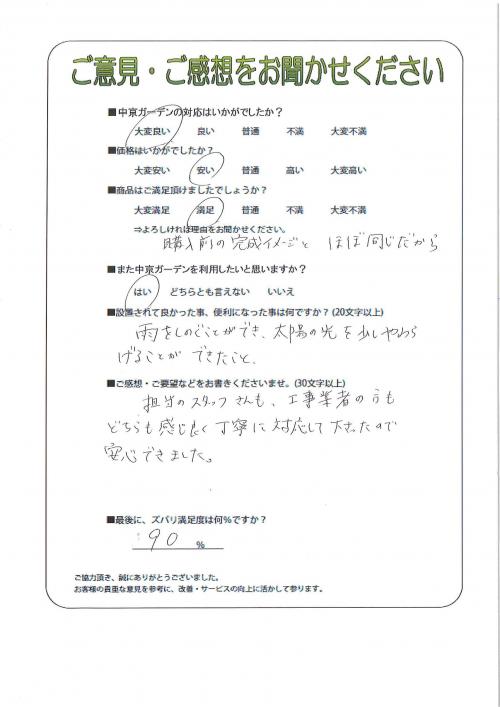 ご意見・ご感想をお聞かせください
■中京ガーデンの対応はいかがでしたか？
大変良い 良い 普通 不満 大変不満
■価格はいかがでしたか？
大変安い 安い 普通 高い 大変高い
■商品はご満足頂けましたでしょうか？
大変満足 満足 普通 不満 大変不満
⇒よろしければ理由をお聞かせください。
購入前の完成イメージと ほぼ同じだから
■また中京ガーデンを利用したいと思いますか？
はい どちらとも言えない いいえ
■設置されて良かった事、便利になった事は何ですか？（20文字以上）
雨をしのぐことができ、太陽の光を少しやわら
げることが できたこと、
■ご感想・ご要望などをお書きくださいませ。（30文字以上）
担当のスタッフさんも、工事業者の方も
どちらも感じ良く丁寧に対応して下さったので
安心できました。
■最後に、ズバリ満足度は何％ですか？
90 %
ご協力頂き、誠にありがとうございました。
お客様の貴重な意見を参考に、改善・サービスの向上に活かして参ります。